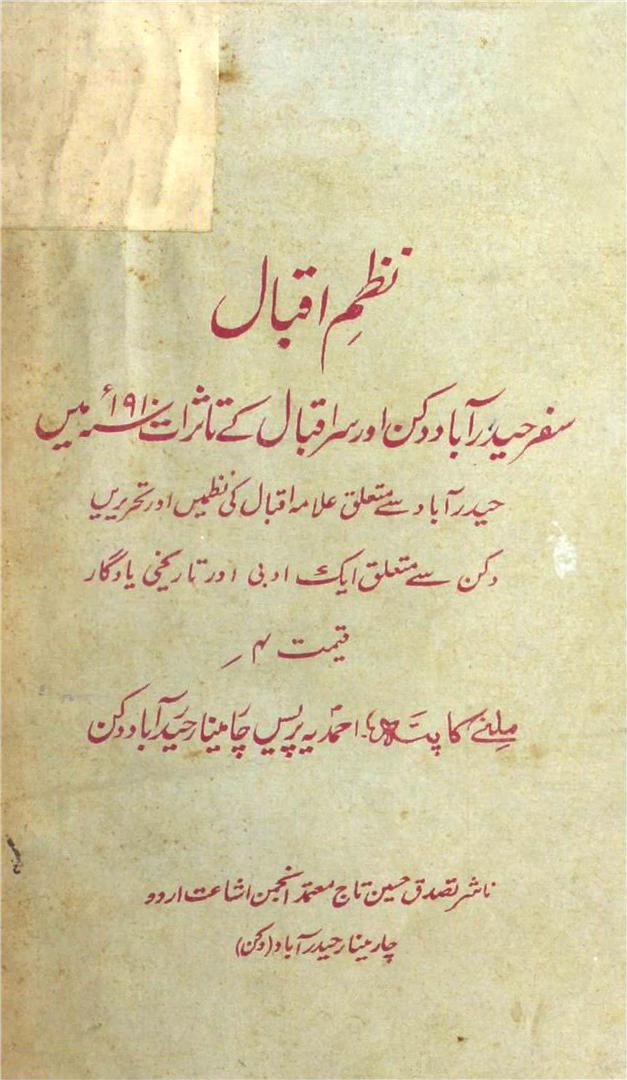 نظمِ اقبال
سفر حیدرآباد دکن اور سر اقبال کے تاثرات ۱۹۱۰ء میں
حیدرآباد سے متعلق علامہ اقبال کی نظمیں اور تحریریں
دکن سے متعلق ایک ادبی اور تاریخی یادگار
قیمت ۴؍
ملنے کا پتہ احمدیہ پریس چارمینار حیدرآباد دکن
ناشر تصدق حسین تاج معتمد انجمن اشاعت اردو
چارمینار حیدرآباد (دکن)